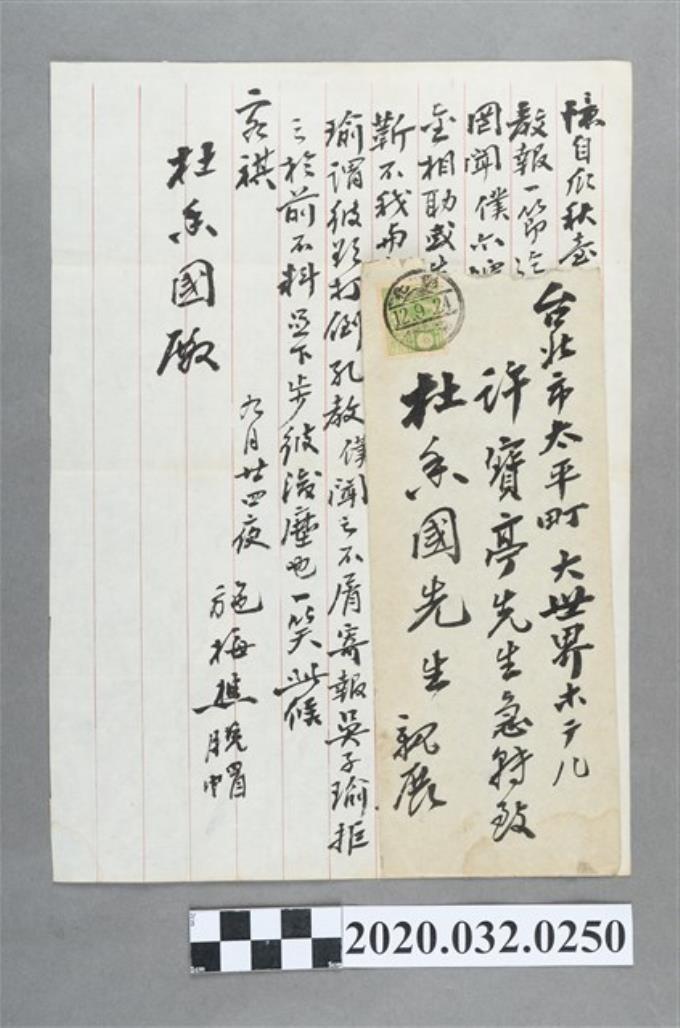 台北市太平町大世界ホテル
許寶亭先生急轉致
杜香國先生 親展
12.9.24
教報一節
閱聞僕亦
金相助或
不我
瑜謂彼欲打倒孔教僕聞之不屑寄報吳子瑜拒
之於前不料足下步彼後塵也一笑此候
文祺
杜香國 啟
九月廿四夜
施梅樵 脫帽
2020.032.0250